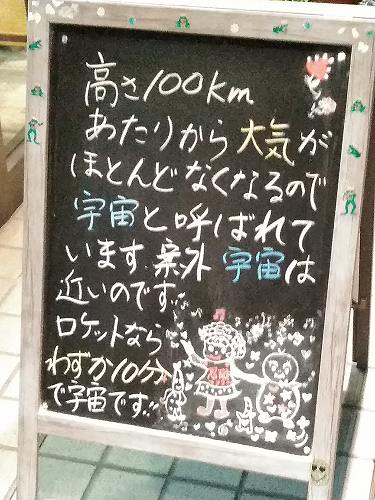 高さ100km
あたりから大気が
ほとんどなくなるので
宇宙と呼ばれて
います.案外宇宙は
近いのです.
ロケットなら
わずか10分
で宇宙です!!